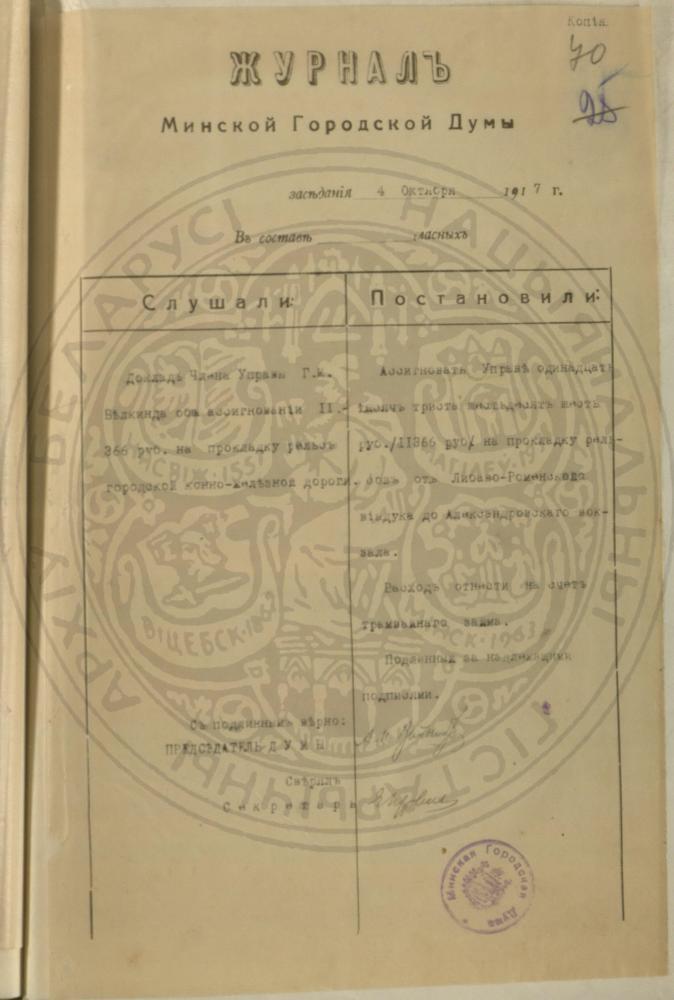 Копія
70
25
ЖУРНАЛЪ
Минской Городской Думы
засѣданія 4 Октября 1917 г.
Въ составѣ гласныхъ
Слушали:
Докладъ Члена Управы Г.К.
Вѣлкинда объ ассигнованіи II.-
366 руб. на прокладку рельсъ
городской конно-желѣзной дороги.
Постановили:
Ассигновать Управѣ одинадцать
тысячъ триста шестьдесятъ шесть
руб./II366 руб/ на прокладку рель-
совъ отъ Либаво-Роменскаго
віадука до Александровскаго вок-
зала.
Расходъ отнести на счетъ
трамвайнаго займа.
Подлинный за надлежащими
подписями.
Съ подлиннымъ вѣрно:
ПРЕДСѢДАТЕЛЬ ДУМЫ
Свѣрялъ
Секретарь
Минская Городская Дума
НАЦЫЯНАЛЬНЫ
ГІСТАРЫЧНЫ
АРХІЎ БЕЛАРУСІ
НЯСВІЖ·1551
МАГІЛЕЎ·19
ВІЦЕБСК·1862
МІНСК·1963